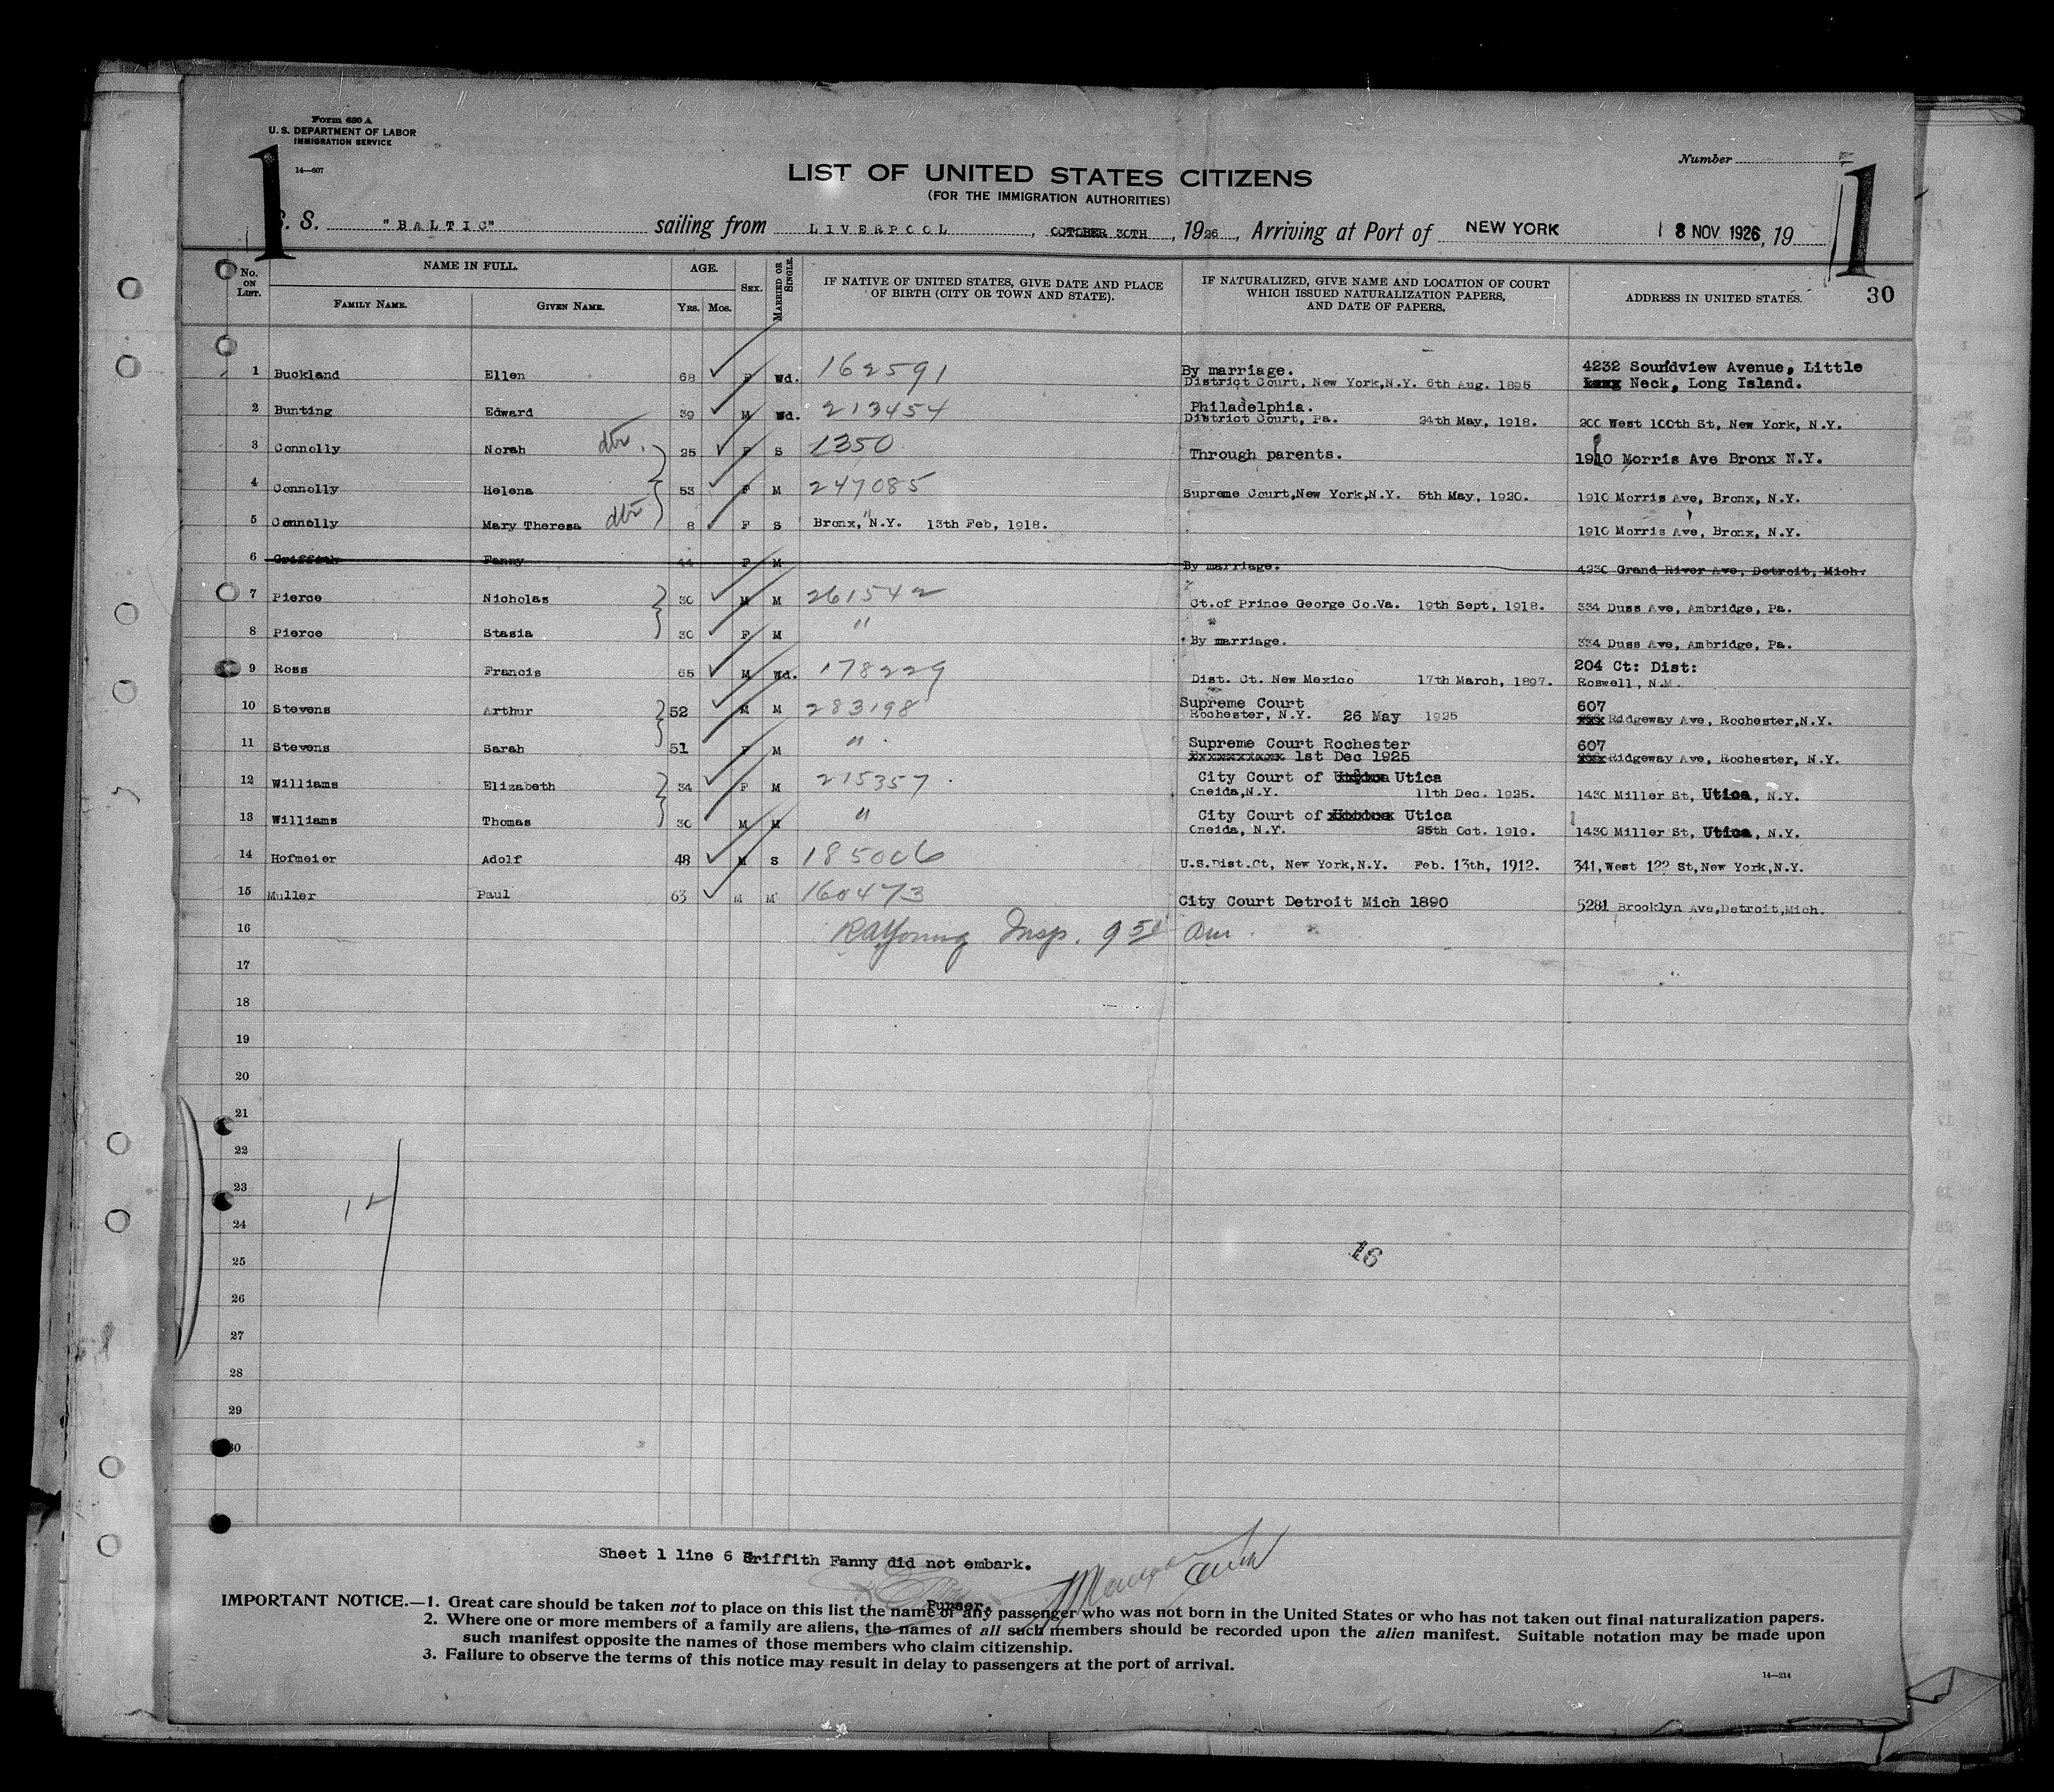 Form 630 A
U. S. DEPARTMENT OF LABOR
IMMIGRATION SERVICE
14—607
1
1
Number
LIST OF UNITED STATES CITIZENS
(FOR THE IMMIGRATION AUTHORITIES)
S. S. "BALTIC" sailing from LIVERPOOL, OCTOBER 30TH, 1926, Arriving at Port of NEW YORK 8 NOV. 1926, 19
30
No. ON LIST. NAME IN FULL. FAMILY NAME. GIVEN NAME. AGE. YRS. MOS. SEX. MARRIED OR SINGLE. IF NATIVE OF UNITED STATES, GIVE DATE AND PLACE OF BIRTH (CITY OR TOWN AND STATE). IF NATURALIZED, GIVE NAME AND LOCATION OF COURT WHICH ISSUED NATURALIZATION PAPERS, AND DATE OF PAPERS. ADDRESS IN UNITED STATES.
1 Buckland Ellen 68 F Wd. 162591 By marriage. District Court, New York,N.Y. 6th Aug. 1895 4232 Soundview Avenue, Little Neck, Long Island.
2 Bunting Edward 39 M Wd. 213454 Philadelphia. District Court, Pa. 24th May, 1918. 200 West 100th St, New York, N.Y.
3 Connolly Norah dtr. 25 F S 1350 Through parents. 1910 Morris Ave Bronx N.Y.
4 Connolly Helena 53 F M 247085 Supreme Court,New York,N.Y. 5th May, 1920. 1910 Morris Ave, Bronx, N.Y.
5 Connolly Mary Theresa dtr 8 F S Bronx, N.Y. 13th Feb, 1918. 1910 Morris Ave, Bronx, N.Y.
6 Griffith Fanny 44 F M By marriage. 4230 Grand River Ave, Detroit, Mich.
7 Pierce Nicholas 30 M M 261542 Ct.of Prince George Co.Va. 19th Sept, 1918. 334 Duss Ave, Ambridge, Pa.
8 Pierce Stasia 30 F M " By marriage. 334 Duss Ave, Ambridge, Pa.
9 Ross Francis 65 M Wd. 178229 Dist. Ct. New Mexico 17th March, 1897. 204 Ct: Dist: Roswell, N.M.
10 Stevens Arthur 52 M M 283198 Supreme Court Rochester, N.Y. 26 May 1925 607 xxx Ridgeway Ave, Rochester,N.Y.
11 Stevens Sarah 51 F M " Supreme Court Rochester xxxxxxxxxxx 1st Dec 1925 607 xxx Ridgeway Ave, Rochester, N.Y.
12 Williams Elizabeth 34 F M 215357 City Court of Utica Oneida,N.Y. 11th Dec. 1925. 1430 Miller St, Utica, N.Y.
13 Williams Thomas 30 M M " City Court of Utica Oneida, N.Y. 25th Oct. 1919. 1430 Miller St, Utica, N.Y.
14 Hofmeier Adolf 48 M S 185006 U.S.Dist.Ct, New York,N.Y. Feb. 13th, 1912. 341,West 122 St,New York,N.Y.
15 Muller Paul 63 M M 160473 City Court Detroit Mich 1890 5281 Brooklyn Ave,Detroit,Mich.
16 RAYoung Insp. 9 50 am.
17
18
19
20
21
22
23
24
25
26
27
28
29
30
14
16
Sheet 1 line 6 Griffith Fanny did not embark.
Purser.
IMPORTANT NOTICE.—1. Great care should be taken not to place on this list the name of any passenger who was not born in the United States or who has not taken out final naturalization papers.
2. Where one or more members of a family are aliens, the names of all such members should be recorded upon the alien manifest. Suitable notation may be made upon
such manifest opposite the names of those members who claim citizenship.
3. Failure to observe the terms of this notice may result in delay to passengers at the port of arrival.
14—214